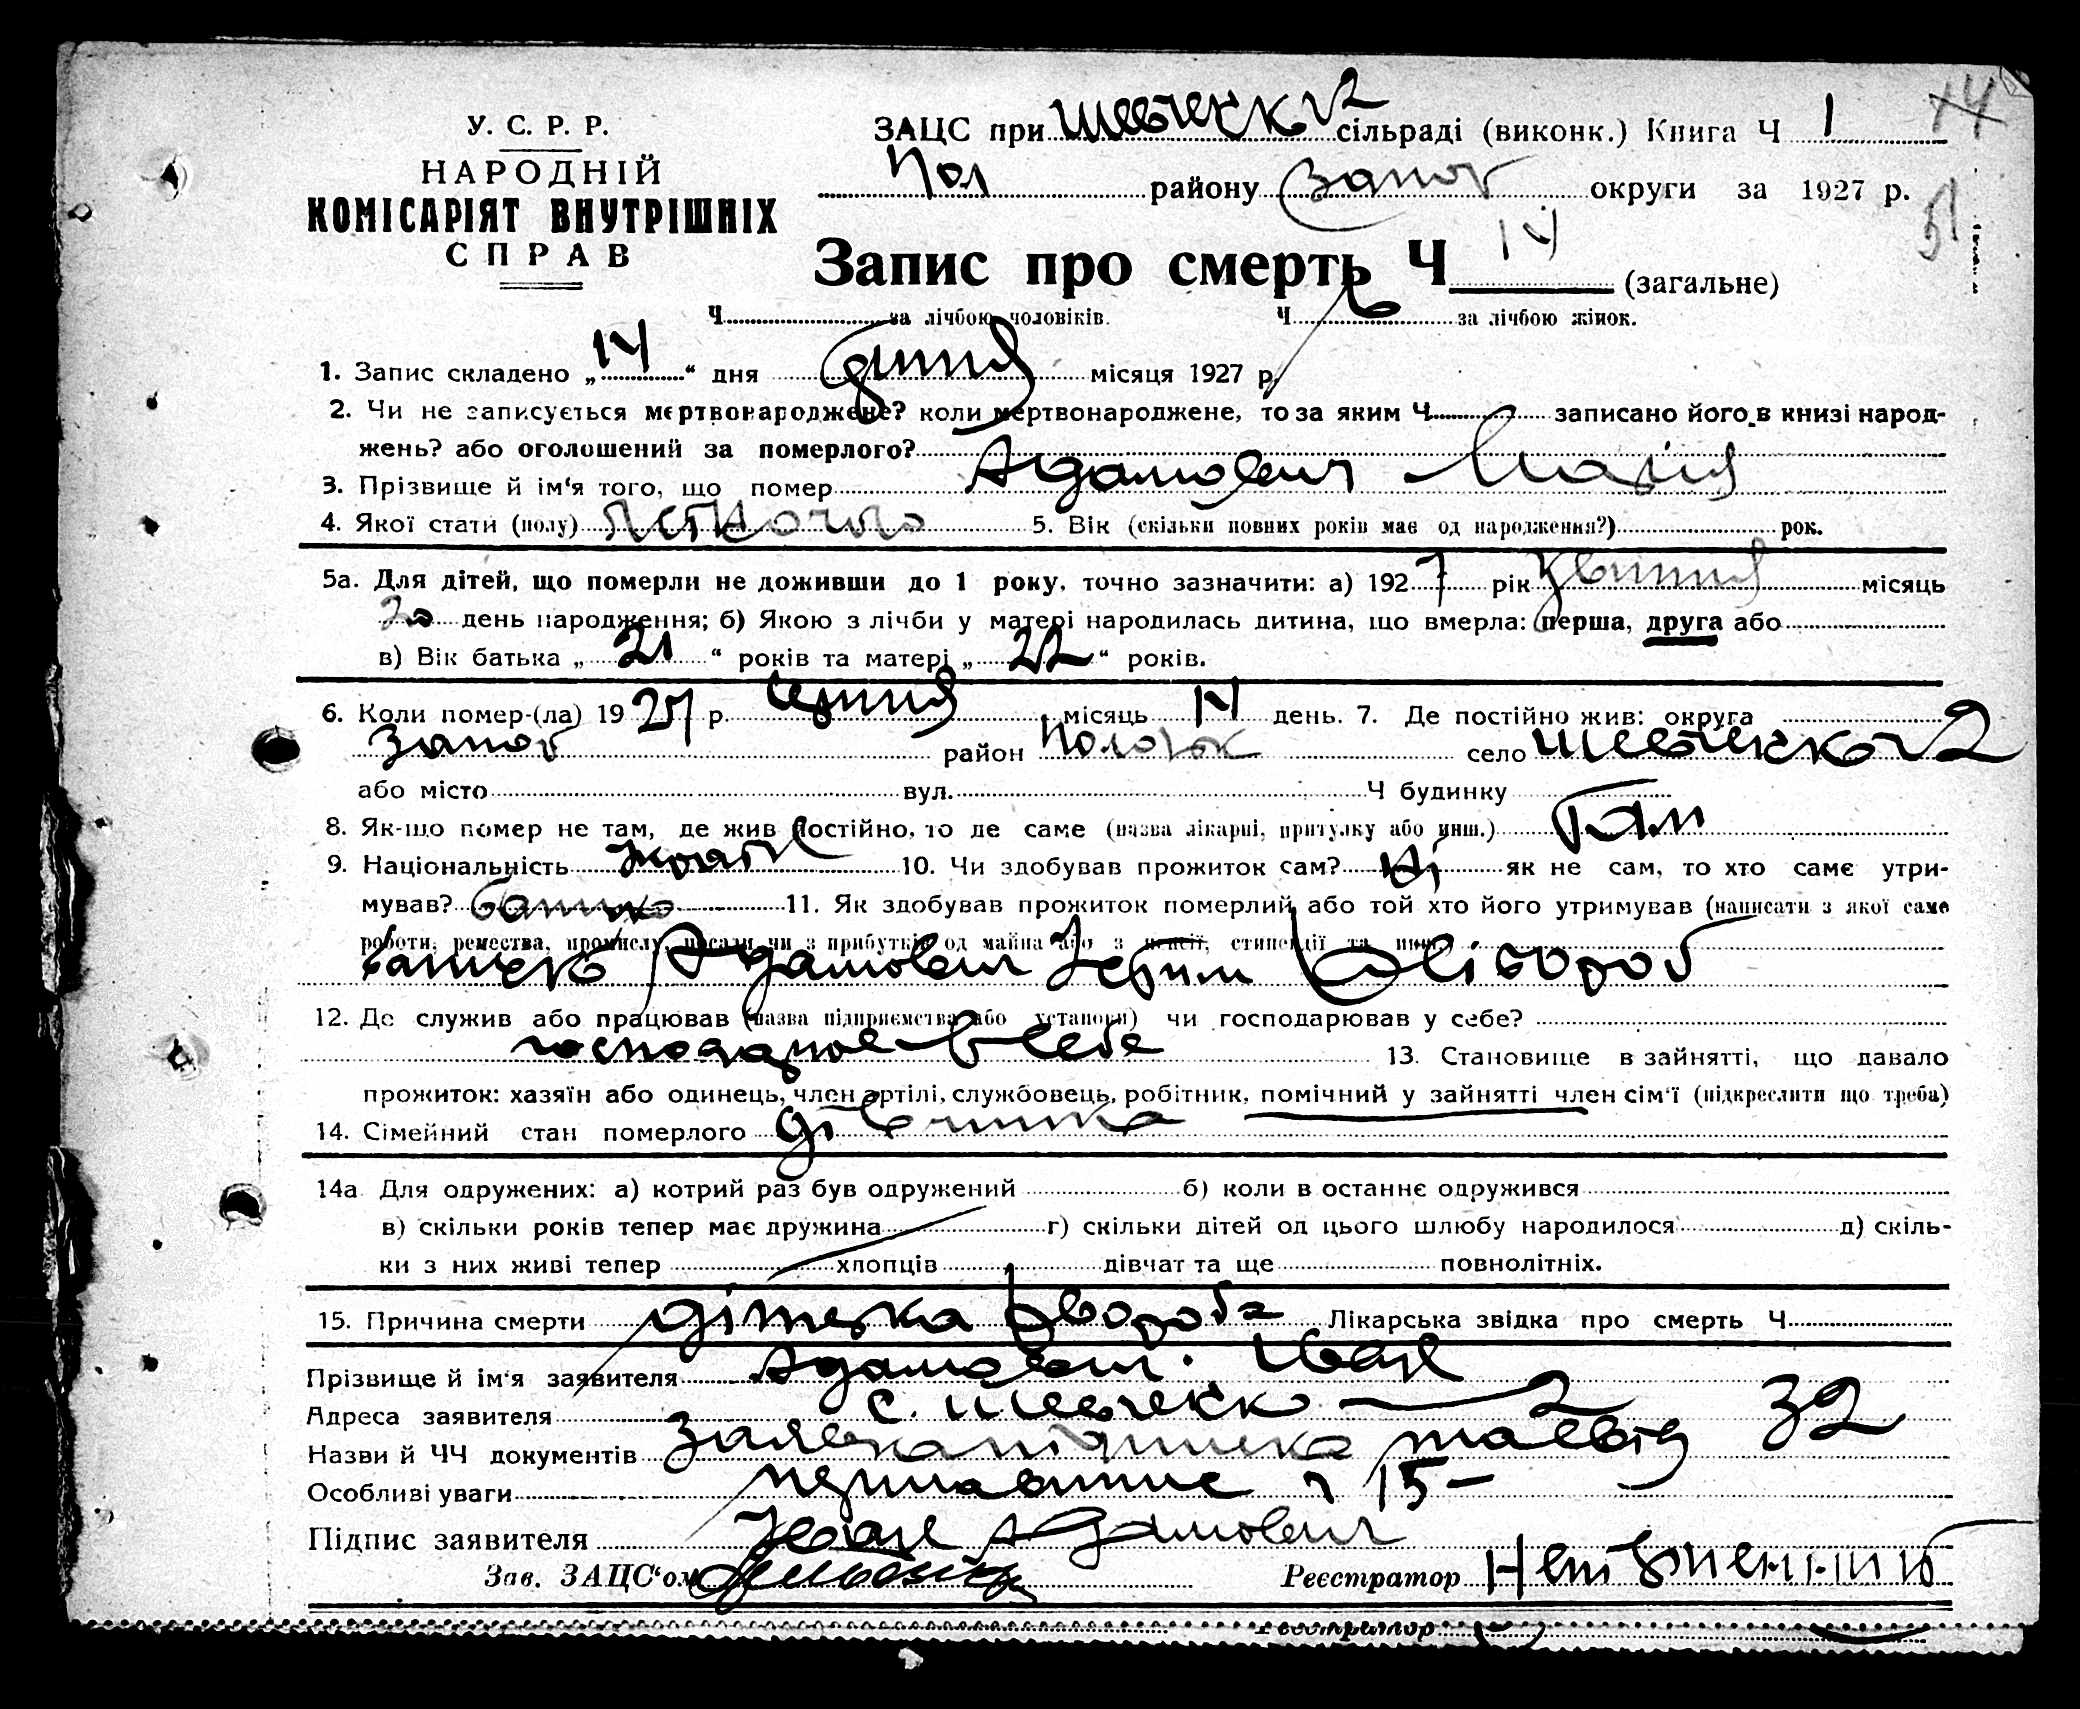 У. С. Р. Р.
НАРОДНІЙ
КОМІСАРІЯТ ВНУТРІШНІХ
СПРАВ
ЗАЦС при Шевченко 2 сільраді (виконк.) Книга Ч 1
14
Пол району Запор округи за 1927 р.
51
Запис про смерть Ч 14 (загальне)
Ч за лічбою чоловіків. Ч 6 за лічбою жінок.
1. Запис складено „ 14 “ дня місяця 1927 р.
2. Чи не записується мертвонароджене? коли мертвонароджене, то за яким Ч записано його в книзі народ-
жень? або оголошений за померлого?
3. Прізвище й ім‘я того, що помер Адамович Марія
4. Якої стати (полу) 5. Вік (скільки повних років має од народження?) рок.
5а. Для дітей, що померли не доживши до 1 року, точно зазначити: а) 1927 рік Квітня місяць
20 день народження; б) Якою з лічби у матері народилась дитина, що вмерла: перша, друга або
в) Вік батька „ 21 “ років та матері „ 22 “ років.
6. Коли помер-(ла) 1927 р. серпня місяць 14 день. 7. Де постійно жив: округа
Запор район Полог село Шевченко 2
або місто вул. Ч будинку
8. Як-що помер не там, де жив постійно, то де саме (назва лікарні, притулку або инш.) там
9. Національність 10. Чи здобував прожиток сам? ні як не сам, то хто саме утри-
мував? батько 11. Як здобував прожиток померлий або той хто його утримував (написати з якої саме
роботи, ремества, промислу, посади чи з прибутків од майна або з пенсії, стипендії та инш.)
батько Адамович хлібороб
12. Де служив або працював (назва підприємства або установи) чи господарював у себе?
господарює в себе 13. Становище в зайнятті, що давало
прожиток: хазяїн або одинець, член артілі, службовець, робітник, помічний у зайнятті член сім‘ї (підкреслити що треба)
14. Сімейний стан померлого дівчинка
14а Для одружених: а) котрий раз був одружений б) коли в останнє одружився
в) скільки років тепер має дружина г) скільки дітей од цього шлюбу народилося д) скіль-
ки з них живі тепер хлопців дівчат та ще повнолітніх.
15. Причина смерти дітська хвороба Лікарська звідка про смерть Ч
Прізвище й ім‘я заявителя Адамович Іван
Адреса заявителя с. Шевченко 2 32
Назви й ЧЧ документів
Особливі уваги 15
Підпис заявителя Іван Адамович
Зав. ЗАЦС‘ом Реєстратор
Реєстратор